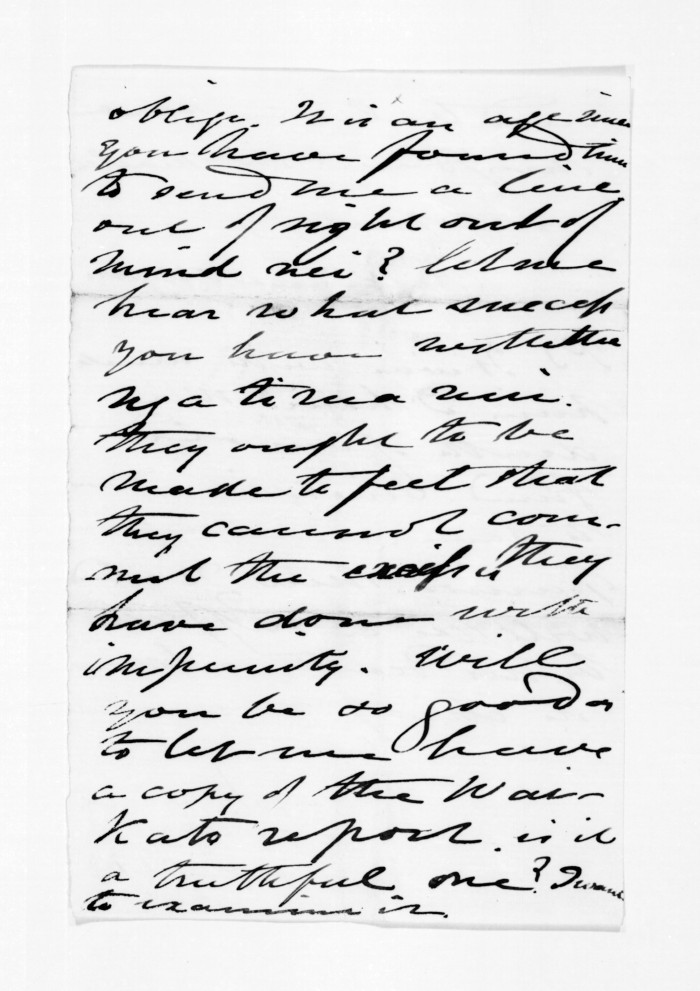 oblige. It is an age since
you have found time
to send me a line
out of sight out of
mind nei? let me
hear what success
you have with the
Ngatimarui.
they ought to be
made to feel that
they cannot com-
mit the excesses they
have done with
impunity. Will
you be so good as
to let me have
a copy of the Wai-
kato report. is it
a truthful one? I want
to examine it.